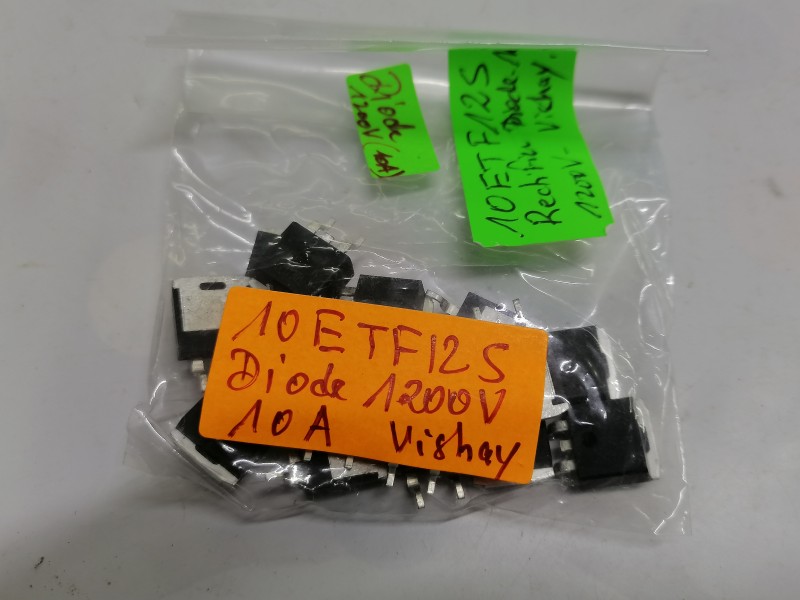 Diode
1200V (10A)
10ETF12S
Rectifier Diode
Vishay.
1200V-
10ETF12S
Diode 1200V
10A Vishay